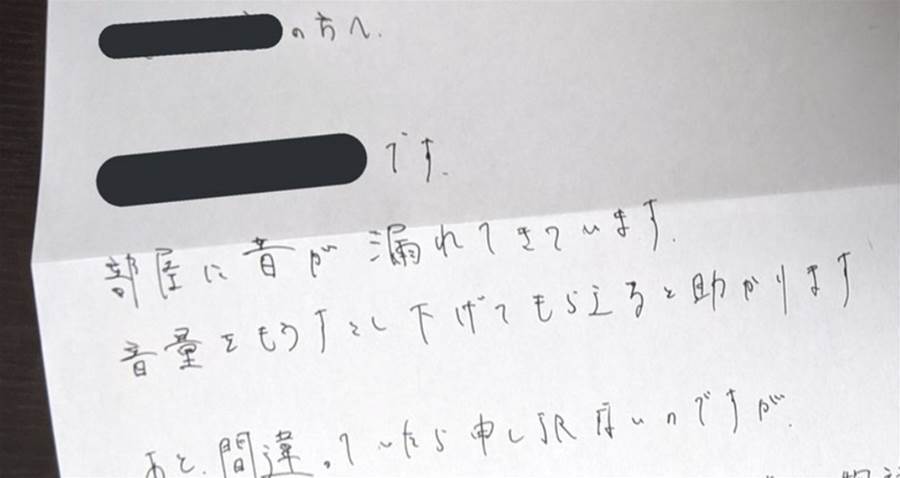 の方へ.
です.
部屋に音が漏れてきています.
音量をもうすこし下げてもらえると助かります
あと、間違っていたら申し訳ないのですが.